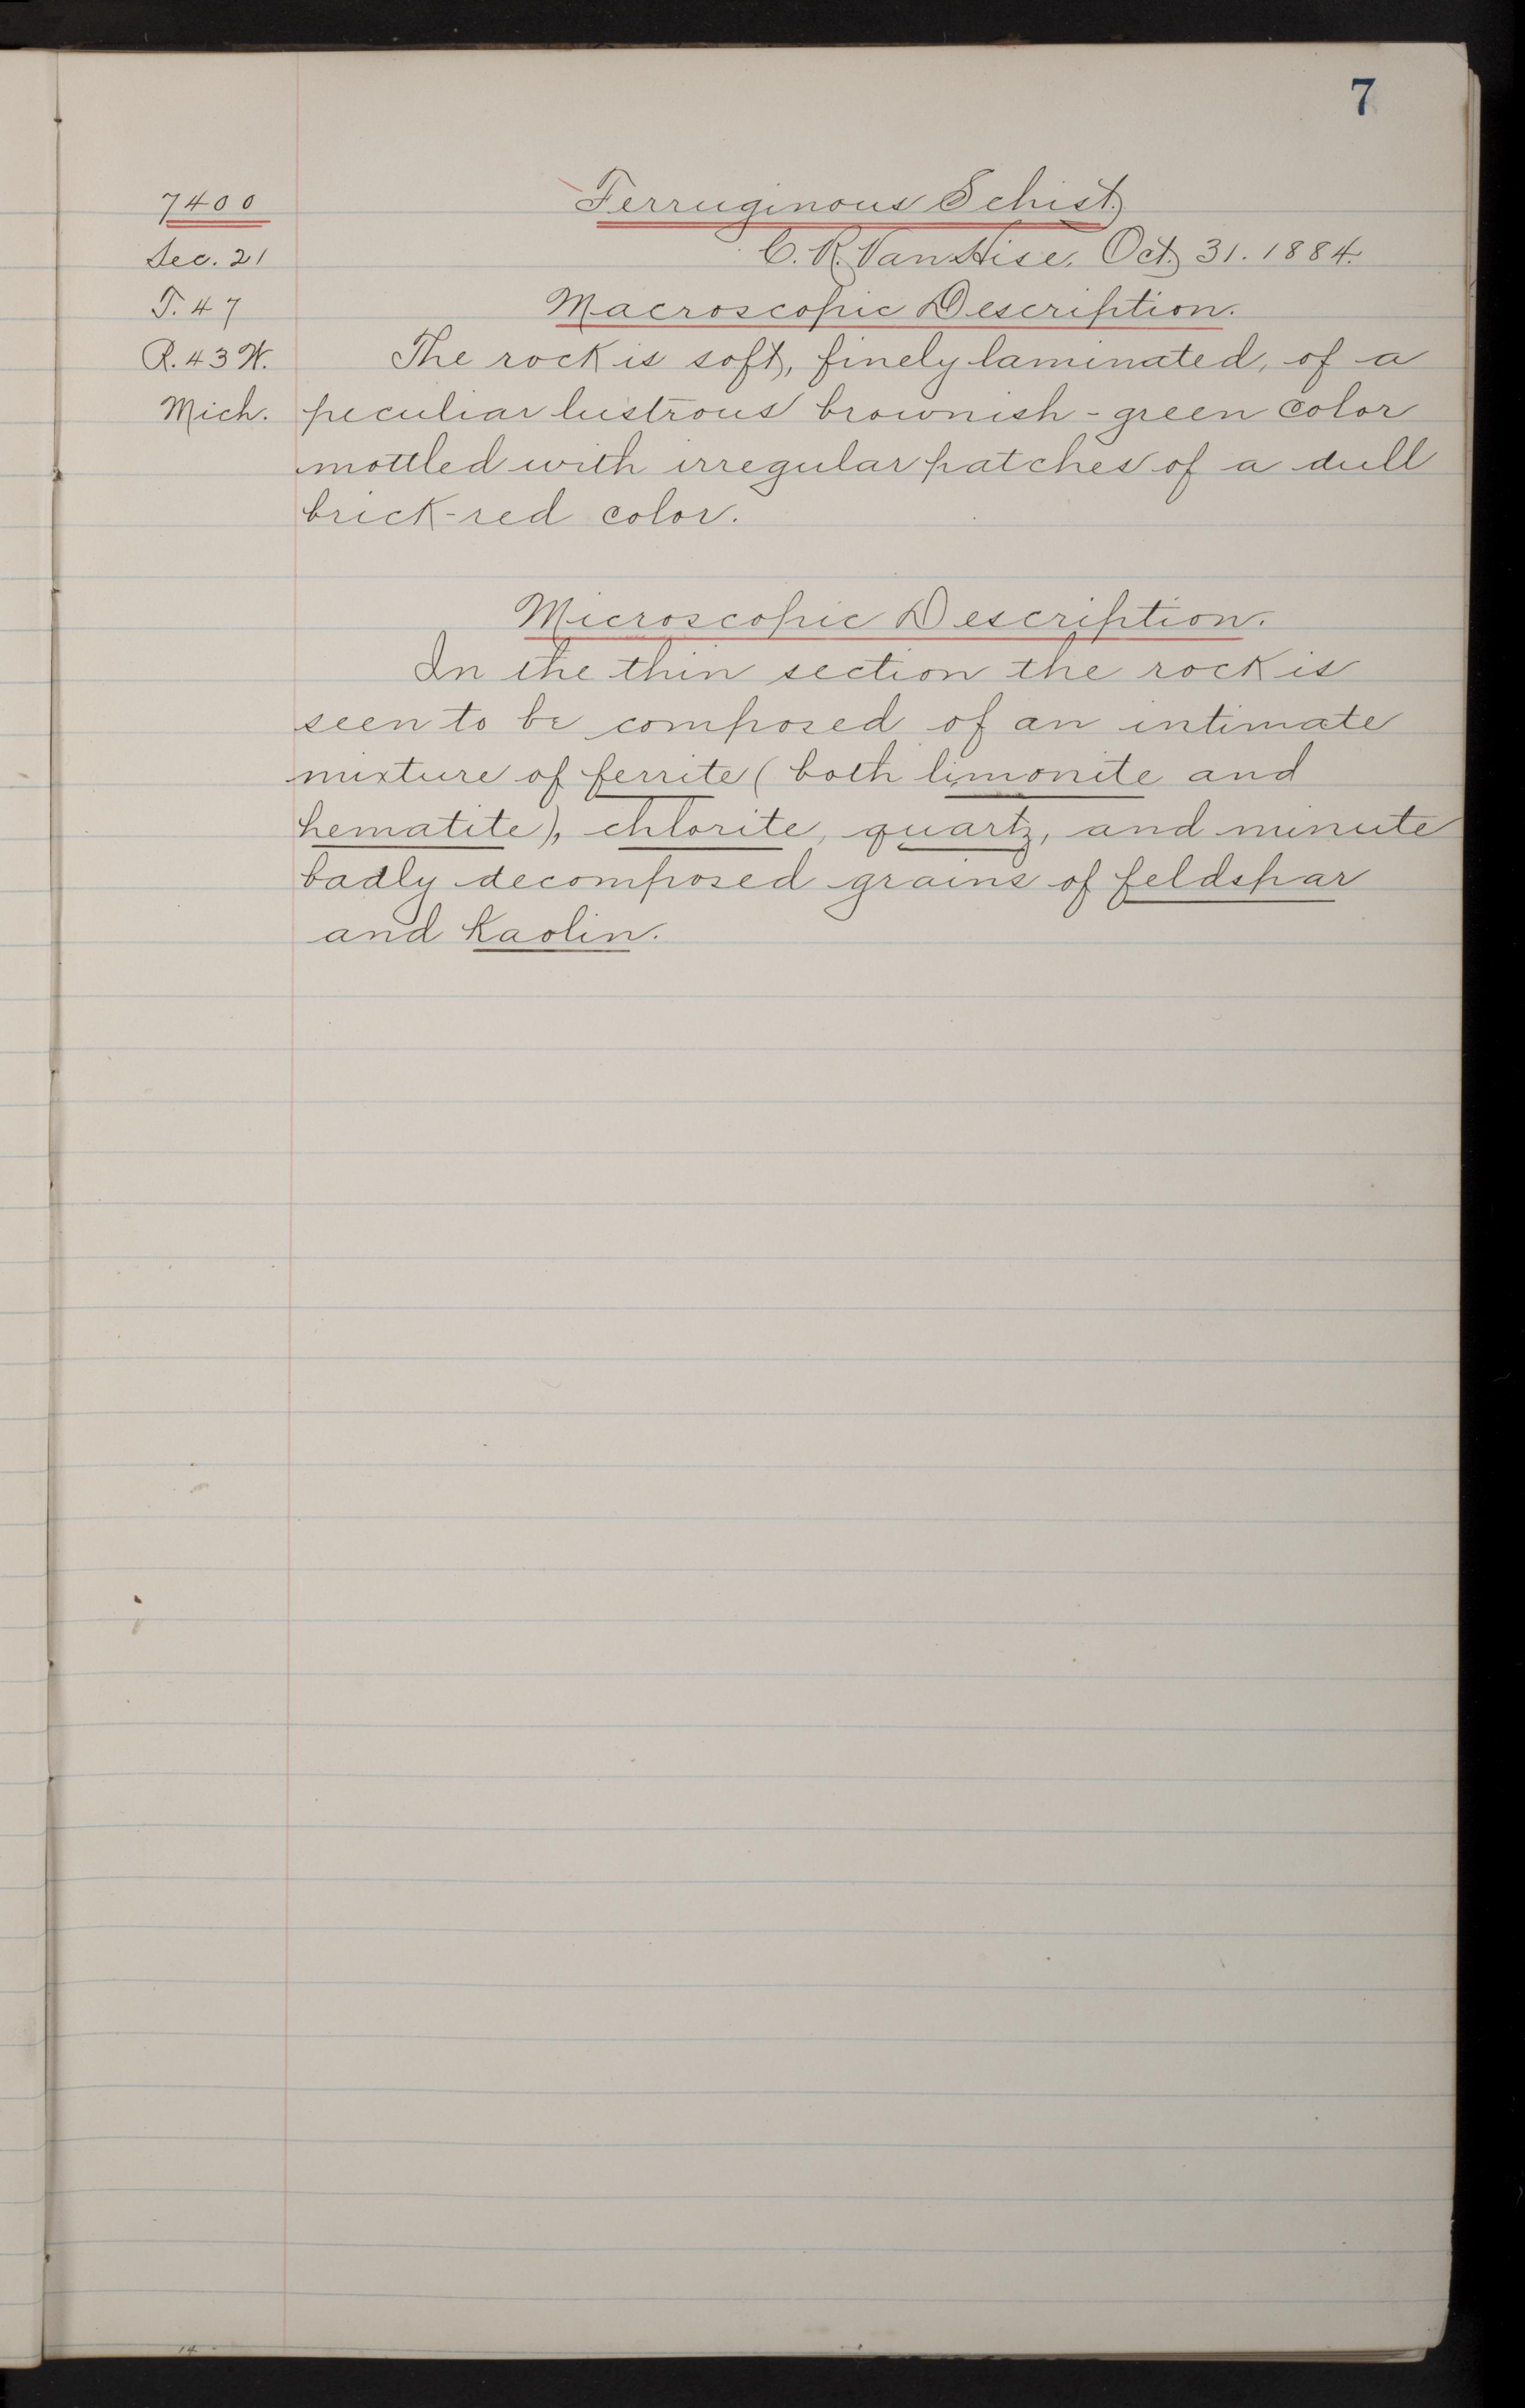 7
7400
Ferruginous Schist.
Sec. 21
C. R. Van Hise, Oct. 31. 1884.
T. 47
Macroscopic Description.
R. 43 W.
The rock is soft, finely laminated, of a
Mich.
peculiar lustrous brownish-green color
mottled with irregular patches of a dull
brick-red color.
Microscopic Description.
In the thin section the rock is
seen to be composed of an intimate
mixture of ferrite (both limonite and
hematite), chlorite, quartz, and minute
badly decomposed grains of feldspar
and kaolin.